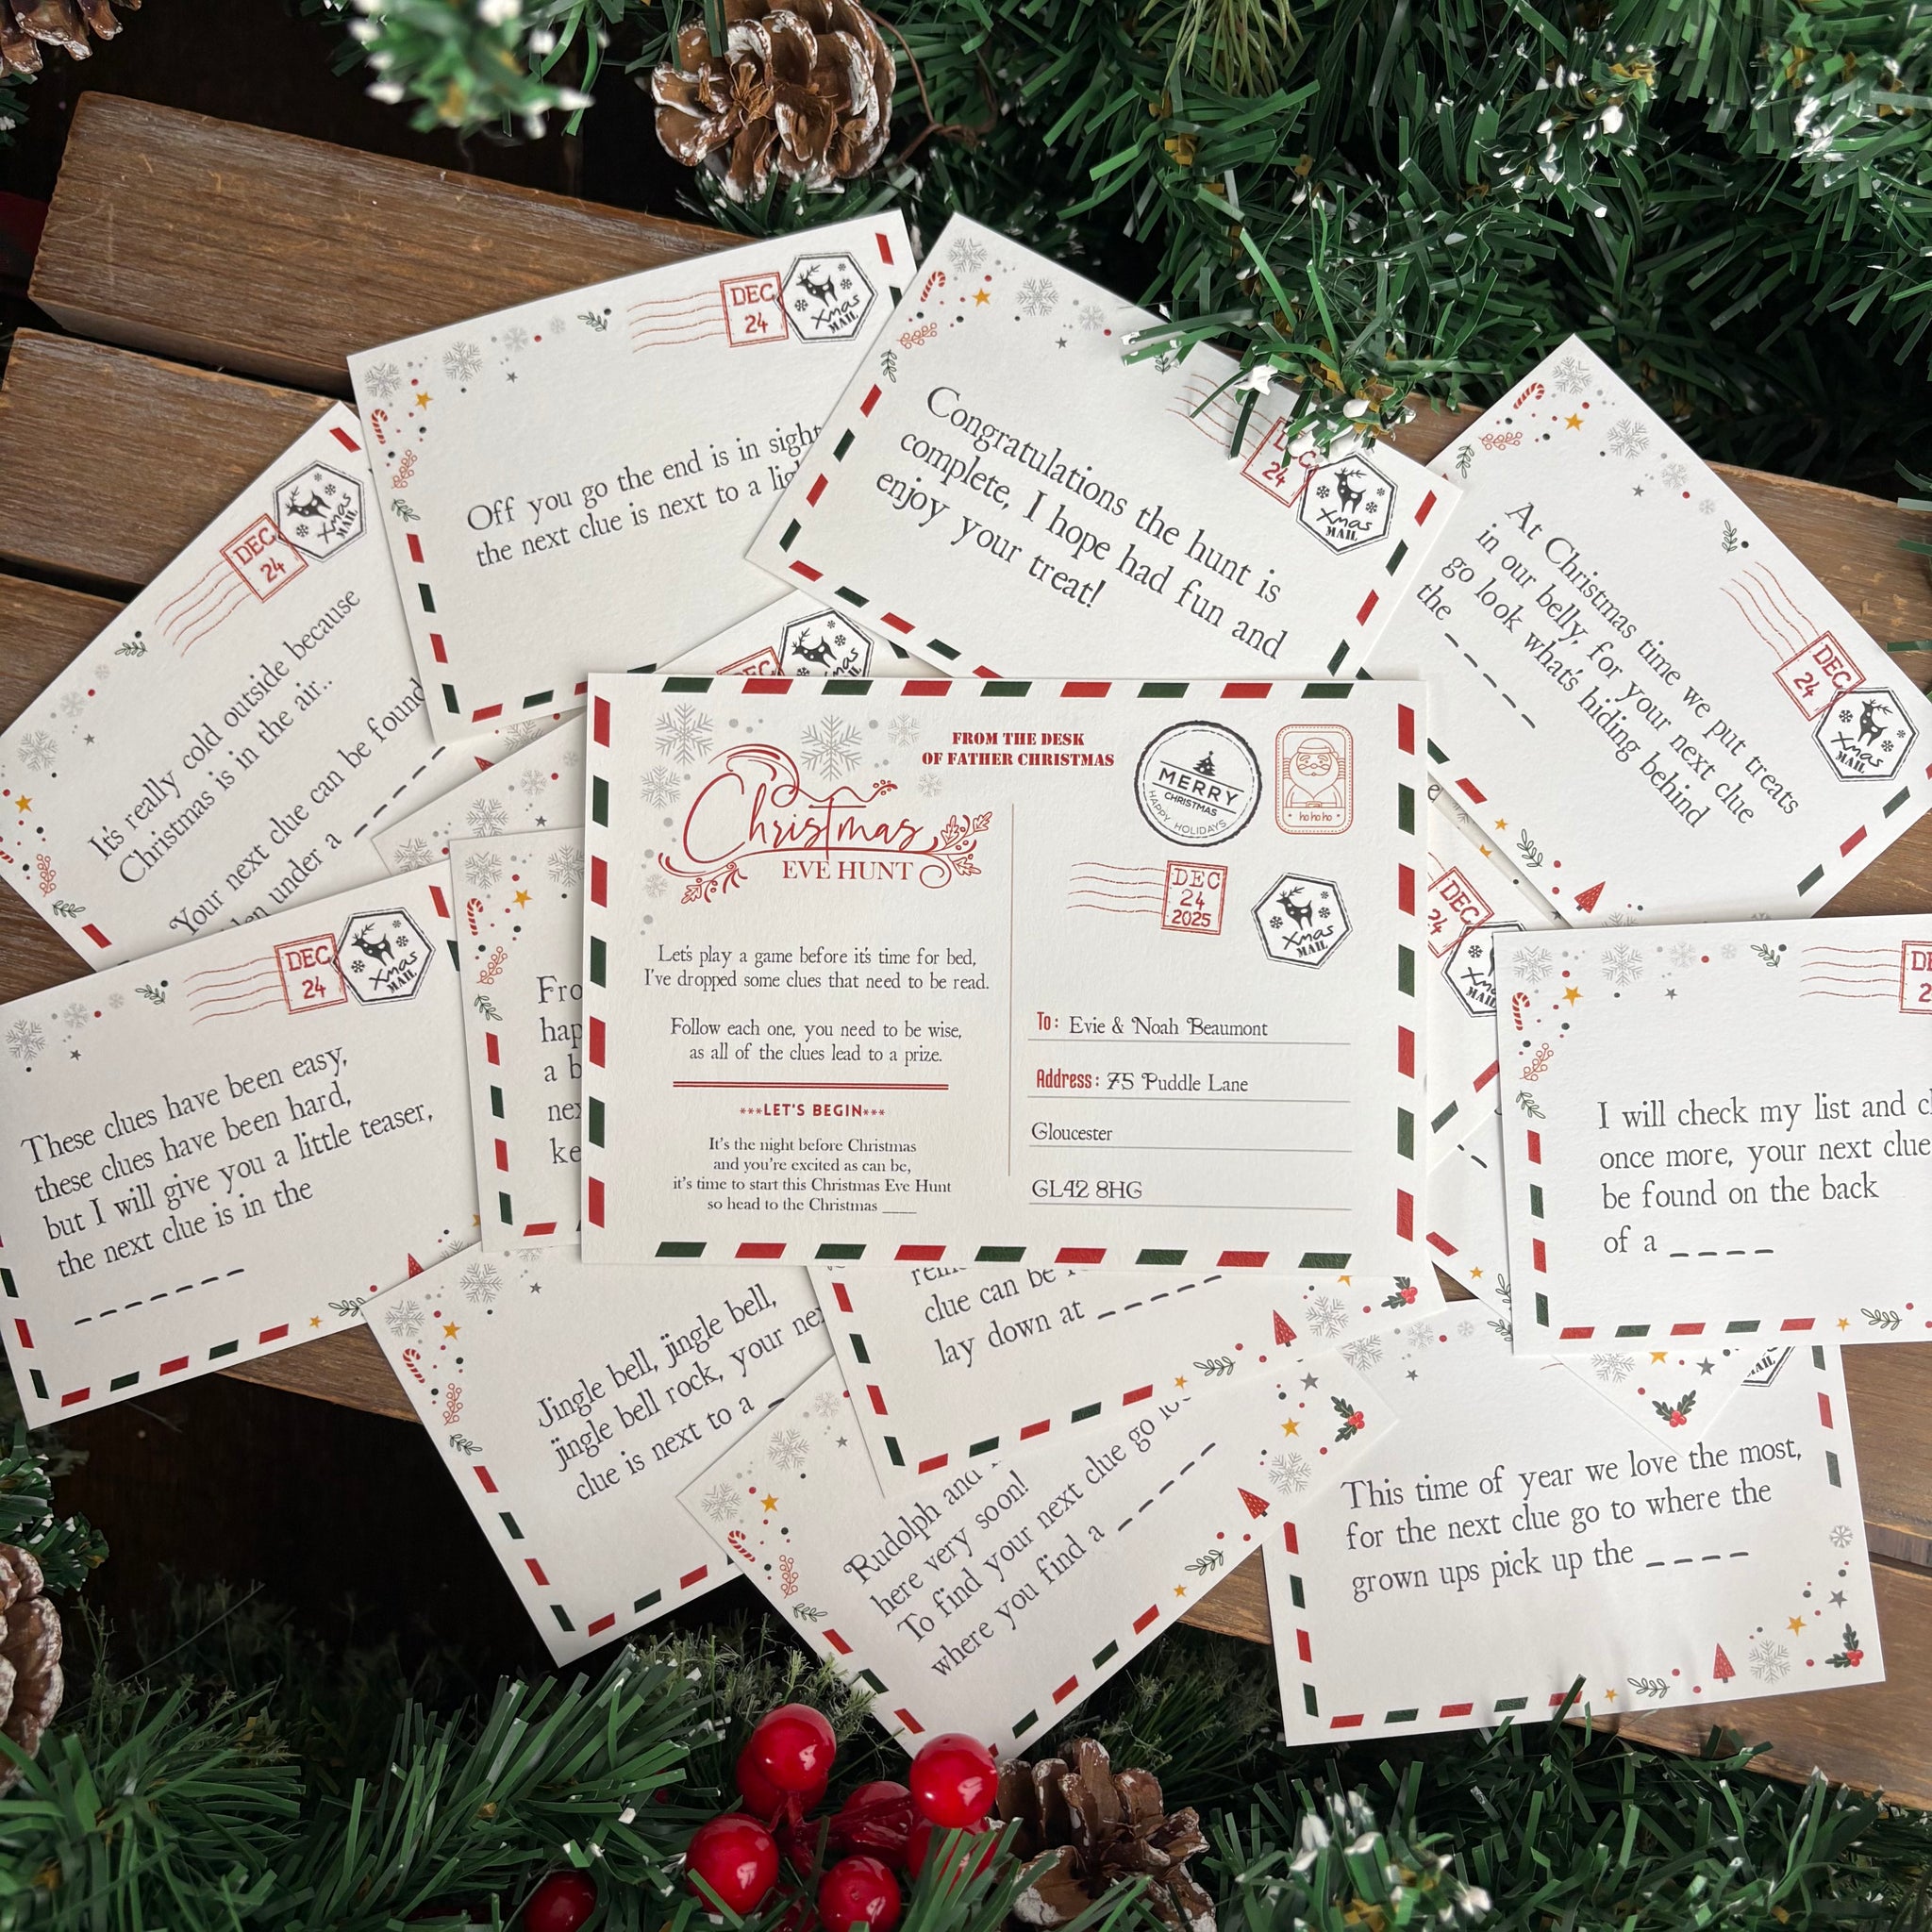 DEC
24
Xmas
MAIL
Off you go the end is in sight
the next clue is next to a
DEC
24
Xmas
MAIL
Congratulations the hunt is
complete, I hope had fun and
enjoy your treat!
DEC
24
Xmas
MAIL
At Christmas time we put treats
in our belly, for your next clue
go look what's hiding behind
the _ _ _ _ _
DEC
24
Xmas
MAIL
It's really cold outside because
Christmas is in the air..
Your next clue can be found
under a _ _ _ _ _
DEC
Xmas
MAIL
FROM THE DESK
OF FATHER CHRISTMAS
MERRY
CHRISTMAS
HAPPY HOLIDAYS
ho ho ho
Christmas
EVE HUNT
DEC
24
2025
Xmas
MAIL
Let's play a game before it's time for bed,
I've dropped some clues that need to be read.
Follow each one, you need to be wise,
as all of the clues lead to a prize.
***LET'S BEGIN***
It's the night before Christmas
and you're excited as can be,
it's time to start this Christmas Eve Hunt
so head to the Christmas ____
To: Evie & Noah Beaumont
Address: 75 Puddle Lane
Gloucester
GL42 8HG
DEC
24
Xmas
MAIL
DEC
24
Xmas
MAIL
These clues have been easy,
these clues have been hard,
but I will give you a little teaser,
the next clue is in the
_ _ _ _ _ _ _
a
I will check my list and
once more, your next clue
be found on the back
of a _ _ _ _
Jingle bell, jingle bell,
jingle bell rock, your
clue is next to a
clue can be
lay down at _ _ _ _ _
Rudolph and
here very soon!
To find your next clue go
where you find a _ _ _ _ _
MAIL
This time of year we love the most,
for the next clue go to where the
grown ups pick up the _ _ _ _